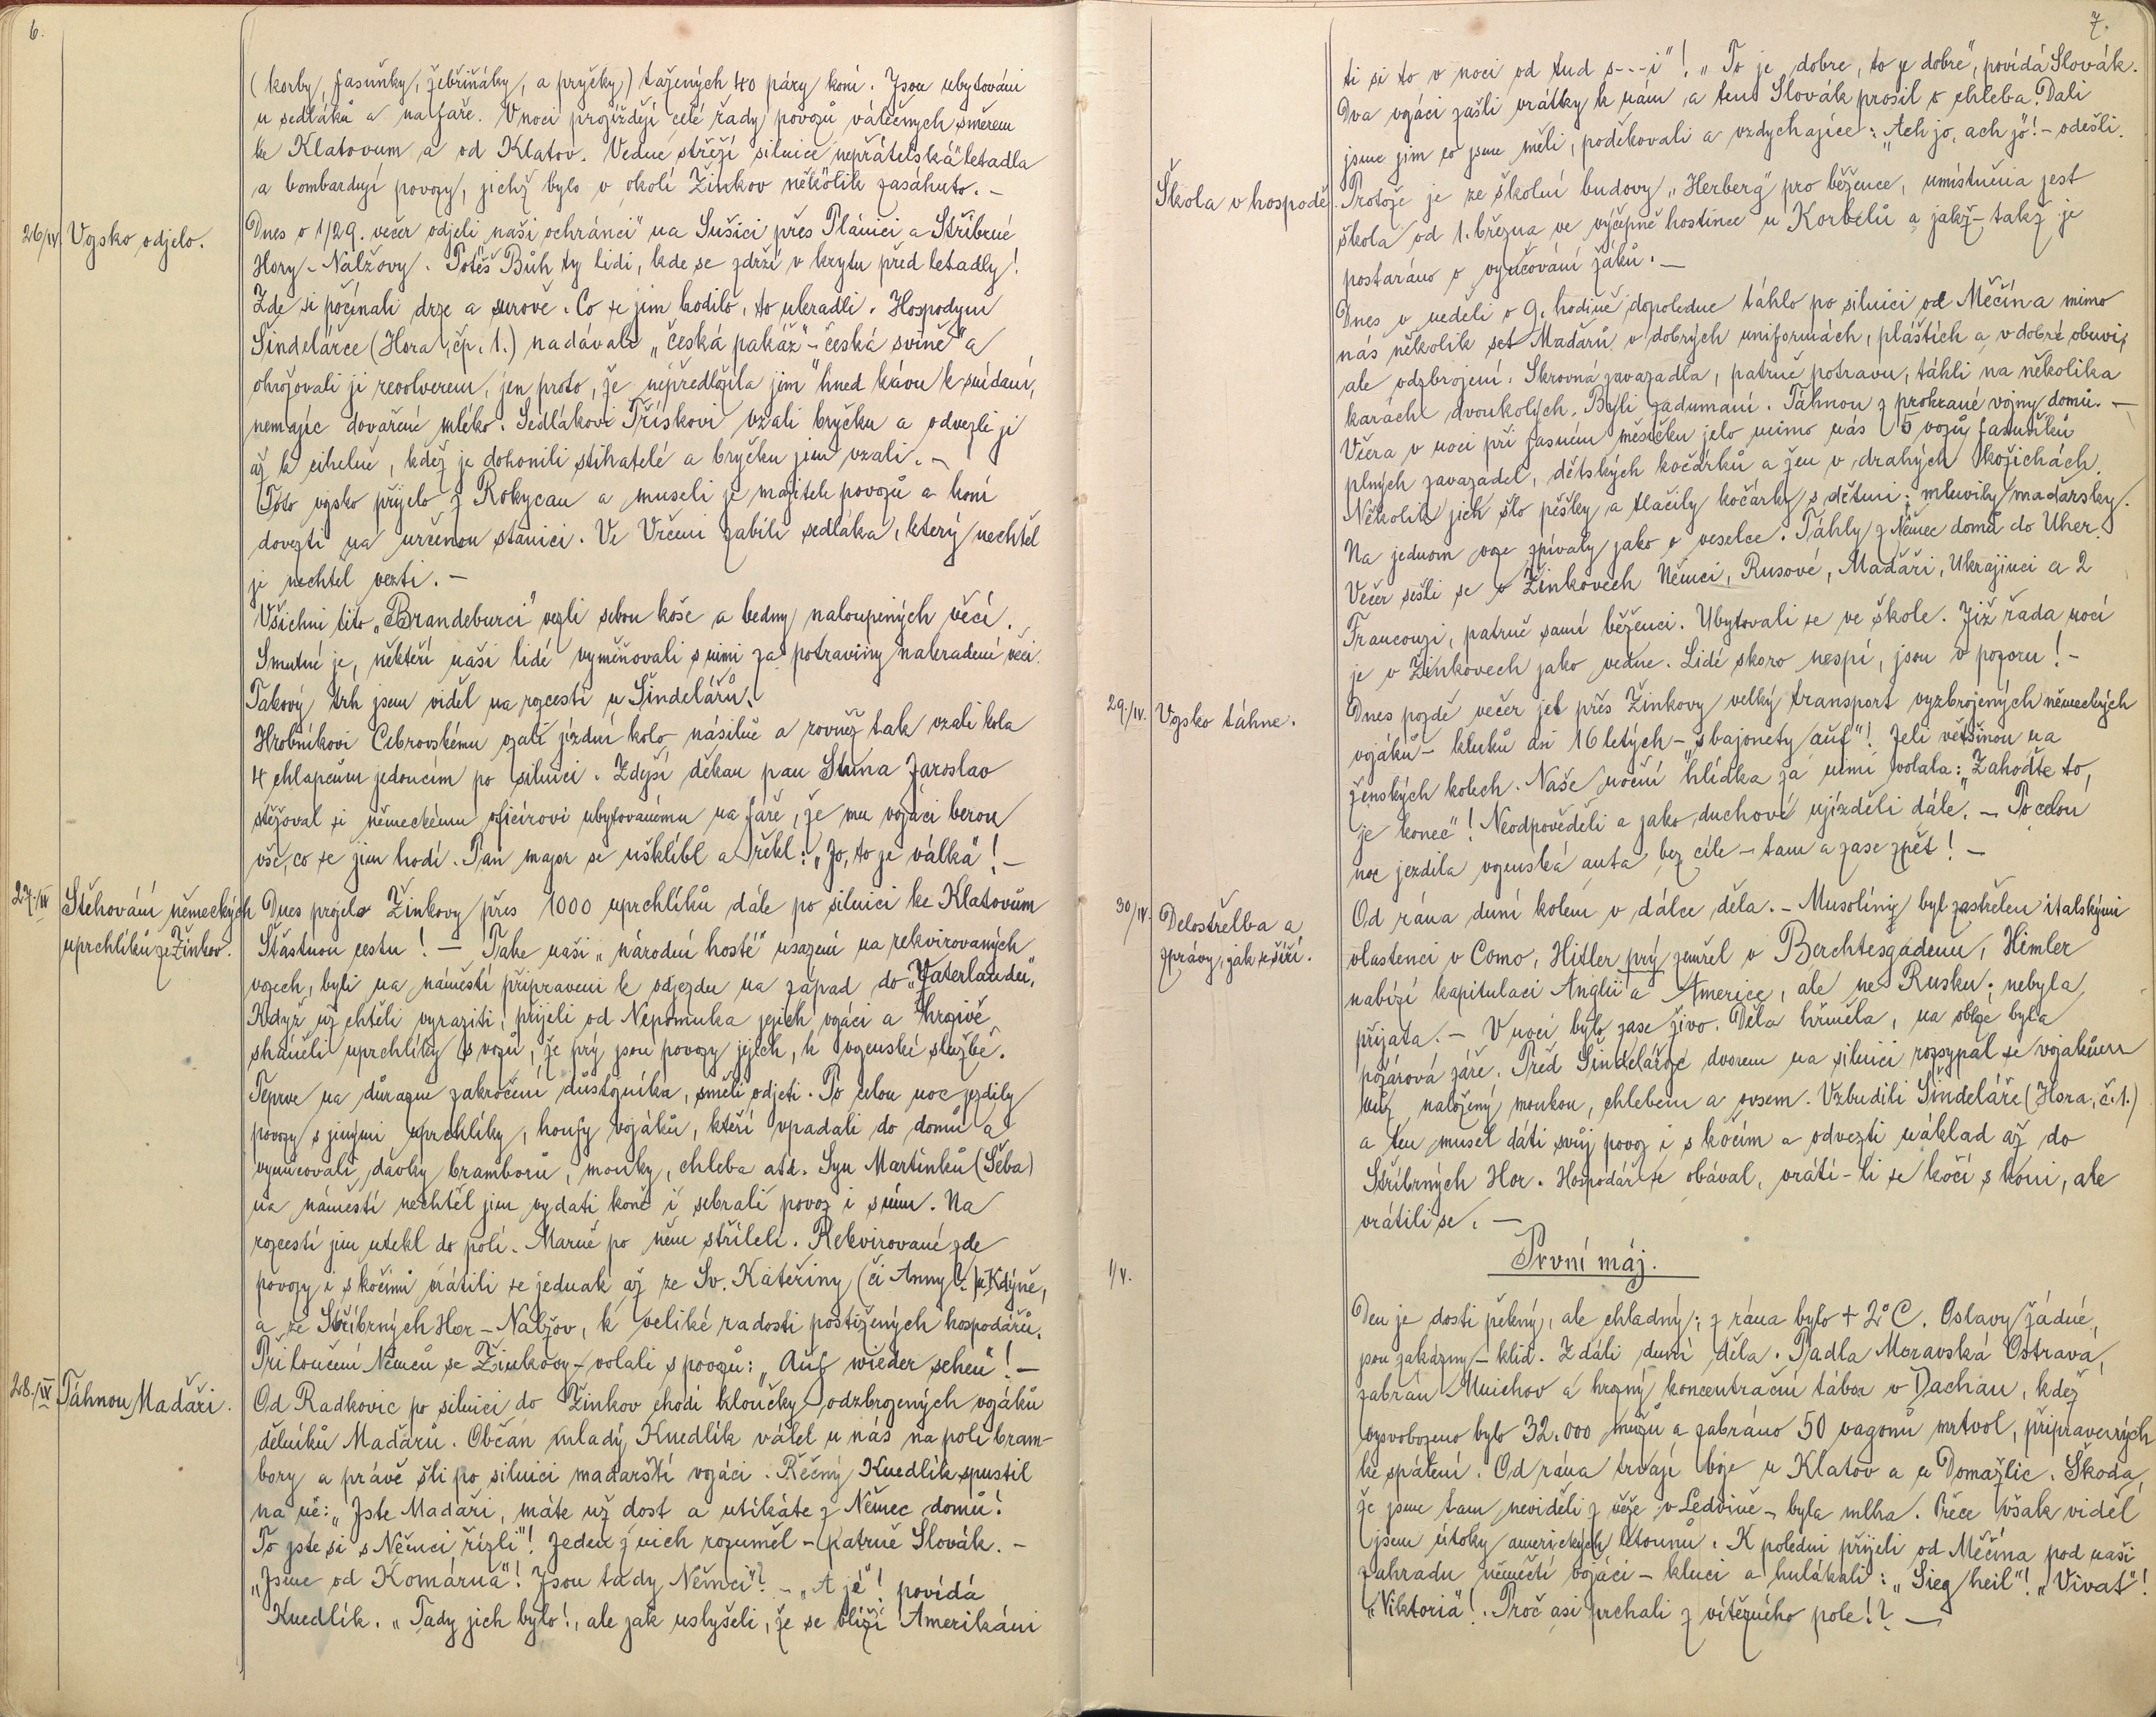 6.
(korby, fasuňky, žebřiňáky, a pryčky) tažených 40 páry koní. Jsou ubytováni
u sedláků a na faře. V noci projíždějí celé řady povozů válečných směrem
ke Klatovům a od Klatov. Ve dne střeží silnice nepřátelská letadla
a bombardují povozy, jichž bylo v okolí Žinkov několik zasáhnuto. –
26/IV. Vojsko odjelo.
Dnes o 1/29. večer odjeli naši „ochránci" na Sušici přes Plánici a Stříbrné
Hory – Nalžovy. Potěš Bůh ty lidi, kde se zdrží v krytu před letadly!
Zde si počínali drze a surově. Co se jim hodilo, to ukradli. Hospodyni
Šindelářce (Hora, čp. 1.) nadávali „česká pakáž" – česká svině" a
ohrožovali ji revolverem, jen proto, že nepředložila jim hned kávu k snídani,
nemajíc dovařené mléko. Sedlákovi Třískovi vzali bryčku a odvezli ji
až k cihelně, kdež je dohonili stihatelé a bryčku jim vzali. –
Toto vojsko přijelo z Rokycan a museli je majitelé povozů a koní
dovézti na určenou stanici. Ve Vrčeni zabili sedláka, který nechtěl
je nechtěl vézti. –
Všichni tito „Brandeburci" vezli sebou koše a bedny naloupených věcí.
Smutné je, někteří naši lidé vyměňovali s nimi za potraviny nakradené věci.
Takový trh jsem viděl na rozcestí u Šindelářů.
Hrobníkovi Cibrovskému vzali jízdní kolo násilně a rovněž tak vzali kola
4 chlapcům jedoucím po silnici. Zdejší děkan pan Šima Jaroslav
stěžoval si německému oficírovi ubytovanému na faře, že mu vojáci berou
vše, co se jim hodí. Pan major se ušklíbl a řekl: „Jo, to je válka"! –
27./IV Stěhování německých
uprchlíků ze Žinkov.
Dnes projelo Žinkovy přes 1000 uprchlíků dále po silnici ke Klatovům
Šťastnou cestu! – Take naši „národní hosté" usazeni na rekvirovaných
vozech, byli na náměstí připraveni k odjezdu na západ do „Vaterlandu".
Když už chtěli vyraziti, přijeli od Nepomuka jejich vojáci a hrozivě
sháněli uprchlíky s vozů, že prý jsou povozy jejich, k vojenské službě.
Teprve na důrazné zakročení důstojníka, směli odjeti. Po celou noc jezdily
povozy s jinými uprchlíky, houfy vojáků, kteří vpadali do domů a
vynucovali dávky bramborů, mouky, chleba atd. Syn Martínků (Šeba)
na náměstí nechtěl jim vydati koně i sebrali povoz i s ním. Na
rozcestí jim utekl do polí. Marně po něm stříleli. Rekvirované zde
povozy i s kočími vrátili se jednak až ze Sv. Kateřiny (či Anny?) u Kdyně,
a ze Stříbrných Hor – Nalžov, k veliké radosti postižených hospodářů.
Při loučení Němců se Žinkovy – volali s povozů: „Auf wieder sehen"! –
28./IV Táhnou Maďaři.
Od Radkovic po silnici do Žinkov chodí hloučky odzbrojených vojáků
dělníků Maďarů. Občan mladý Knedlík válel u nás na poli bram-
bory a právě šli po silnici maďarští vojáci. Řečný Knedlík spustil
na ně: „Jste Maďaři, máte už dost a utíkáte z Němec domů!
To jste si s Němci řízli"! Jeden z nich rozuměl – patrně Slovák. –
„Jsme od Komárna"! Jsou tady Němci"? – „A jé"! povídá
Knedlík. „Tady jich bylo!, ale jak uslyšeli, že se blíží Amerikáni
7.
ti si to v noci od tud s---i"! „To je dobre, to je dobre", povídá Slovák.
Dva vojáci zašli vrátky k nám a ten Slovák prosil o chleba. Dali
jsme jim co jsme měli, poděkovali a vzdychajíce: „Ach jo, ach jo"! – odešli.
Škola v hospodě.
Protože je ze školní budovy „Herberg" pro běžence, umístněna jest
škola od 1. března ve výčepně hostince u Korbelů a jakž – takž je
postaráno o vyučování žáků. –
Dnes v neděli o 9. hodině dopoledne táhlo po silnici od Měčína mimo
nás několik set Maďarů v dobrých uniformách, pláštích a v dobré obuvi,
ale odzbrojení. Skrovná zavazadla, patrně potravu, táhli na několika
karách dvoukolých. Byli zadumaní. Táhnou z prohrané vojny domů. –
Včera v noci při jasném měsíčku jelo mimo nás 15 vozů fasuňků
plných zavazadel, dětských kočárků a žen v drahých kožichách.
Několik jich šlo pěšky a tlačily kočárky s dětmi; mluvily maďarsky.
Na jednom voze zpívaly jako o veselce. Táhly z Němec domů do Uher.
Večer sešli se v Žinkovech Němci, Rusové, Maďaři, Ukrajinci a 2
Francouzi, patrně samí běženci. Ubytovali se ve škole. Již řada nocí
je v Žinkovech jako ve dne. Lidé skoro nespí, jsou v pozoru! –
29./IV. Vojsko táhne.
Dnes pozdě večer jel přes Žinkovy velký transport vyzbrojených německých
vojáků – kluků asi 16 letých – „s bajonety auf"! Jeli většinou na
ženských kolech. Naše noční hlídka za nimi volala: „Zahoďte to,
je konec"! Neodpověděli a jako duchové ujížděli dále. – Po celou
noc jezdila vojenská auta bez cíle – tam a zase zpět! –
30/IV. Delostřelba a
zprávy, jak se šíří.
Od rána duní kolem v dálce děla. – Musolíny byl zastřelen italskými
vlastenci v Como, Hitler prý zemřel v Berchtesgadenu, Himler
nabízí kapitulaci Anglii a Americe, ale ne Rusku; nebyla
přijata. – V noci bylo zase živo. Děla hřměla, na obloze byla
požárová záře. Před Šindelářojc dvorem na silnici rozsypal se vojákům
vůz naložený moukou, chlebem a ovsem. Vzbudili Šindeláře (Hora, č. 1.)
a ten musel dáti svůj povoz i s kočím a odvezti náklad až do
Stříbrných Hor. Hospodář se obával, vrátí-li se kočí s koni, ale
vrátili se. –
První máj.
1/V.
Den je dosti pěkný, ale chladný; z rána bylo + 2° C. Oslavy žádné,
jsou zakázány – klid. Z dáli duní děla. Padla Moravská Ostrava,
zabrán Mnichov a hrozný koncentrační tábor v Dachau, kdež
vysvobozeno bylo 32.000 mužů a zabráno 50 vagonů mrtvol, připravených
ke spálení. Od rána trvají boje u Klatov a u Domažlic. Škoda,
že jsme tam neviděli z věže v Ledvině – byla mlha. Přece však viděl
jsem útoky amerických letounů. K polední přijeli od Měčína pod naši
zahradu němečtí vojáci – kluci a hulákali: „Sieg heil"! „Vivat"!
„Viktoria"!. Proč asi prchali z vítězného pole!? –